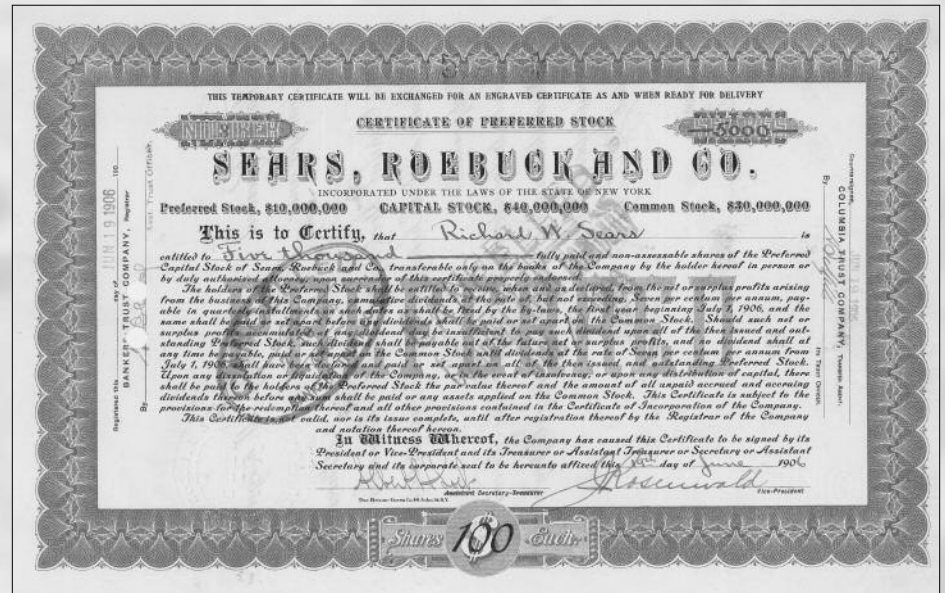 THIS TEMPORARY CERTIFICATE WILL BE EXCHANGED FOR AN ENGRAVED CERTIFICATE AS AND WHEN READY FOR DELIVERY
NUMBER
CERTIFICATE OF PREFERRED STOCK
5000
SEARS, ROEBUCK AND CO.
INCORPORATED UNDER THE LAWS OF THE STATE OF NEW YORK
Preferred Stock, $10,000,000 CAPITAL STOCK, $40,000,000 Common Stock, $30,000,000
This is to Certify, that Richard W. Sears is
entitled to Five thousand fully paid and non-assessable shares of the Preferred
Capital Stock of Sears, Roebuck and Co., transferable only on the books of the Company by the holder hereof in person or
by duly authorized attorney, upon surrender of this certificate properly endorsed.
The holders of the Preferred Stock shall be entitled to receive, when and as declared, from the net or surplus profits arising
from the business of this Company, cumulative dividends at the rate of, but not exceeding, Seven per centum per annum, pay-
able in quarterly installments on such dates as shall be fixed by the by-laws, the first year beginning July 1, 1906, and the
same shall be paid or set apart before any dividends shall be paid or set apart on the Common Stock. Should such net or
surplus profits accumulated at any dividend day be insufficient to pay such dividend upon all of the then issued and out-
standing Preferred Stock, such dividend shall be payable out of the future net or surplus profits, and no dividend shall at
any time be payable, paid or set apart on the Common Stock until dividends at the rate of Seven per centum per annum from
July 1, 1906, shall have been declared and paid or set apart on all of the then issued and outstanding Preferred Stock.
Upon any dissolution or liquidation of the Company, or in the event of insolvency, or upon any distribution of capital, there
shall be paid to the holders of the Preferred Stock the par value thereof and the amount of all unpaid accrued and accruing
dividends thereon before any sum shall be paid or any assets applied on the Common Stock. This Certificate is subject to the
provisions for the redemption thereof and all other provisions contained in the Certificate of Incorporation of the Company.
This Certificate is not valid, nor is its issue complete, until after registration thereof by the Registrar of the Company
and notation thereof hereon.
In Witness Whereof, the Company has caused this Certificate to be signed by its
President or Vice-President and its Treasurer or Assistant Treasurer or Secretary or Assistant
Secretary and its corporate seal to be hereunto affixed this 19th day of June 1906
Albert Loeb J Rosenwald
Assistant Secretary-Treasurer Vice-President
Shares $100 Each
Registered this day of 190
JUN 19 1906
BANKERS TRUST COMPANY, Registrar
By
Asst. Trust Officer.
Countersigned,
COLUMBIA TRUST COMPANY, Transfer Agent.
By
for Trust Officer.